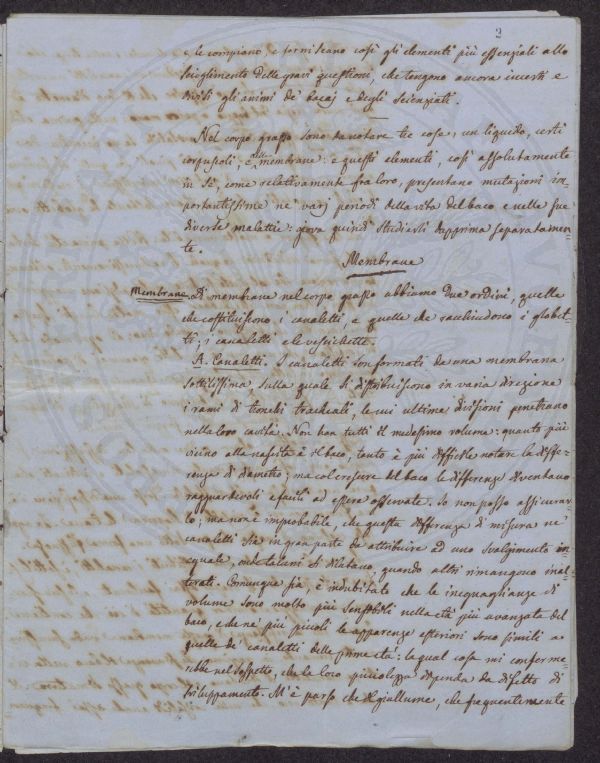 2
e le compiano, e forniscano così gli elementi più essenziali allo
scioglimento delle gravi questioni, che tengono ancora incerti e
divisi gli animi de' bacaj e degli scienziati.
Nel corpo grasso sono da notare tre cose, un liquido, certi
corpuscoli, e delle membrane: e questi elementi, così assolutamente
in sè, come relativamente fra loro, presentano mutazioni im-
portantissime ne' varj periodi della vita del baco e nelle sue
diverse malattie: giova quindi studiarli dapprima separatamen-
te.
Membrane
Membrane. Di membrane nel corpo grasso abbiamo due ordini, quelle
che costituiscono i canaletti, e quelle che racchiudono i globet-
ti; i canaletti e le vescichette.
A. Canaletti. I canaletti son formati da una membrana
sottilissima, sulla quale si distribuiscono in varia direzione
i rami di tronchi tracheali, le cui ultime divisioni penetrano
nella loro cavità. Non han tutti il medesimo volume: quanto più
vicino alla nascita è il baco, tanto è più difficile notare la diffe-
renza di diametro; ma col crescere del baco le differenze diventano
ragguardevoli e facili ad essere osservate. Io non posso assicurar-
lo; ma non è improbabile, che questa differenza di misura ne'
canaletti sia in gran parte da attribuire ad uno svolgimento in-
eguale, onde taluni si dilatano, quando altri rimangono inal-
terati. Comunque sia, è indubitato che le ineguaglianze di
volume sono molto più sensibili nella età più avanzata del
baco, e che ne' più piccoli le apparenze esteriori sono simili a
quelle de' canaletti delle prime età: la qual cosa mi conferme-
rebbe nel sospetto, che la loro picciolezza dipenda da difetto di
sviluppamento. M'è parso che il giallume, che frequentemente